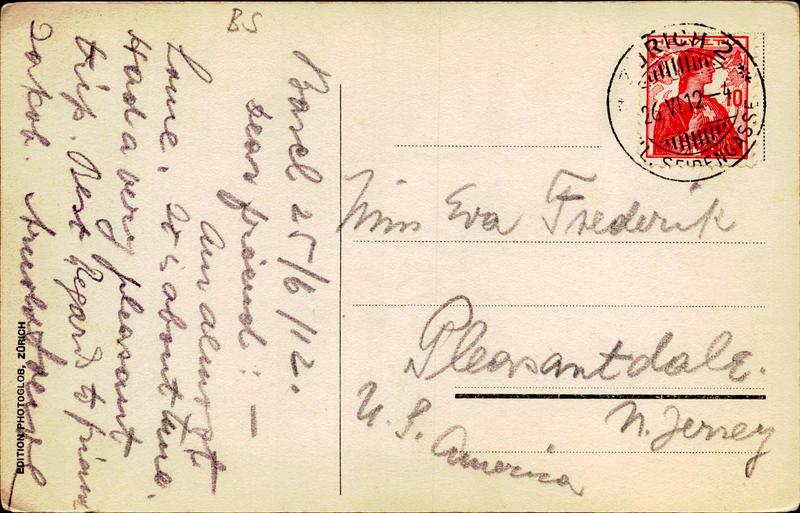 BS
Basel 25/6/12.
Dear friend! —
Am almost
home. It is about time.
Had a very pleasant
trip. Best Regards to friend
Jakob.
EDITION PHOTOGLOB, ZÜRICH
ZÜRICH 2
26.VI.12–4
SEIDENGASSE
HELVETIA
10
Miss Eva Frederik
Pleasantdale.
N. Jersey
U. S. America